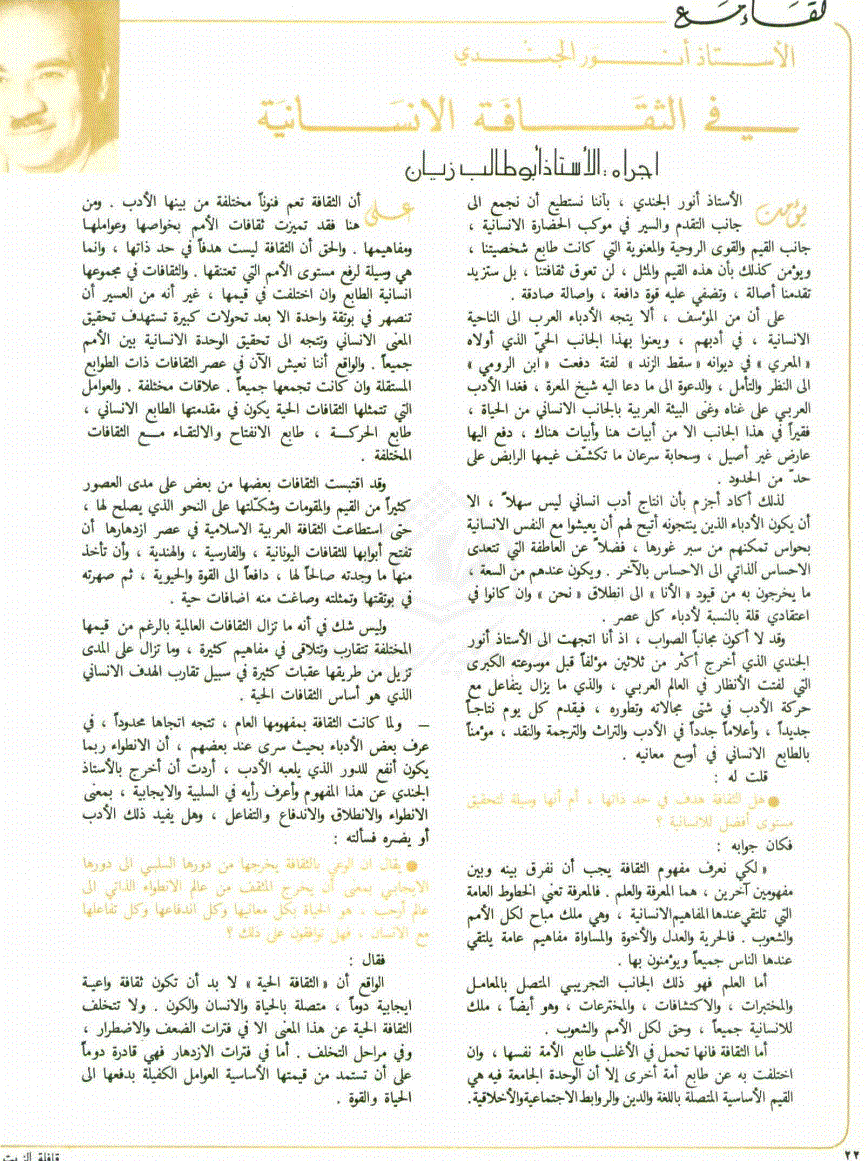 لقاء مع
الأستاذ أنور الجندي
في الثقافة الانسانية
اجراه : الأستاذ أبو طالب زيان
يؤمن الأستاذ أنور الجندي ، بأننا نستطيع أن نجمع الى
جانب التقدم والسير في موكب الحضارة الانسانية ،
جانب القيم والقوى الروحية والمعنوية التي كانت طابع شخصيتنا ،
ويؤمن كذلك بأن هذه القيم والمثل ، لن تعوق ثقافتنا ، بل ستزيد
تقدمنا أصالة ، وتضفي عليه قوة دافعة ، واصالة صادقة .
على أن من المؤسف ، ألا يتجه الأدباء العرب الى الناحية
الانسانية ، في أدبهم ، ويعنوا بهذا الجانب الحيّ الذي أولاه
« المعري » في ديوانه « سقط الزند » لفتة دفعت « ابن الرومي »
الى النظر والتأمل ، والدعوة الى ما دعا اليه شيخ المعرة ، فغدا الأدب
العربي على غناه وغنى البيئة العربية بالجانب الانساني من الحياة ،
فقيراً في هذا الجانب الا من أبيات هنا وأبيات هناك ، دفع اليها
عارض غير أصيل ، وسحابة سرعان ما تكشّف غيمها الرابض على
حدّ من الحدود .
لذلك أكاد أجزم بأن انتاج أدب انساني ليس سهلاً ، الا
أن يكون الأدباء الذين ينتجونه أتيح لهم أن يعيشوا مع النفس الانسانية
بحواس تمكنهم من سبر غورها ، فضلاً عن العاطفة التي تتعدى
الاحساس الذاتي الى الاحساس بالآخر . ويكون عندهم من السعة ،
ما يخرجون به من قيود « الأنا » الى انطلاق « نحن » وان كانوا في
اعتقادي قلة بالنسبة لأدباء كل عصر .
وقد لا أكون مجانباً الصواب ، اذ أنا اتجهت الى الأستاذ أنور
الجندي الذي أخرج أكثر من ثلاثين مؤلفاً قبل موسوعته الكبرى
التي لفتت الأنظار في العالم العربي ، والذي ما يزال يتفاعل مع
حركة الأدب في شتى مجالاته وتطوره ، فيقدم كل يوم نتاجاً
جديداً ، وأعلاماً جدداً في الأدب والتراث والترجمة والنقد ، مؤمناً
بالطابع الانساني في أوسع معانيه .
قلت له :
● هل الثقافة هدف في حد ذاتها ، أم أنها وسيلة لتحقيق
مستوى أفضل للانسانية ؟
فكان جوابه :
« لكي نعرف مفهوم الثقافة يجب أن نفرق بينه وبين
مفهومين آخرين ، هما المعرفة والعلم . فالمعرفة تعني الخطوط العامة
التي تلتقي عندها المفاهيم الانسانية ، وهي ملك مباح لكل الأمم
والشعوب . فالحرية والعدل والأخوة والمساواة مفاهيم عامة يلتقي
عندها الناس جميعاً ويؤمنون بها .
أما العلم فهو ذلك الجانب التجريبي المتصل بالمعامل
والمختبرات ، والاكتشافات ، والمخترعات ، وهو أيضاً ، ملك
للانسانية جميعاً ، وحق لكل الأمم والشعوب .
أما الثقافة فانها تحمل في الأغلب طابع الأمة نفسها ، وان
اختلفت به عن طابع أمة أخرى إلا أن الوحدة الجامعة فيه هي
القيم الأساسية المتصلة باللغة والدين والروابط الاجتماعية والأخلاقية.
على أن الثقافة تعم فنوناً مختلفة من بينها الأدب . ومن
هنا فقد تميزت ثقافات الأمم بخواصها وعواملها
ومفاهيمها . والحق أن الثقافة ليست هدفاً في حد ذاتها ، وانما
هي وسيلة لرفع مستوى الأمم التي تعتنقها . والثقافات في مجموعها
انسانية الطابع وان اختلفت في قيمها ، غير أنه من العسير أن
تنصهر في بوتقة واحدة الا بعد تحولات كبيرة تستهدف تحقيق
المعنى الانساني وتتجه الى تحقيق الوحدة الانسانية بين الأمم
جميعاً . والواقع أننا نعيش الآن في عصر الثقافات ذات الطوابع
المستقلة وان كانت تجمعها جميعاً . علاقات مختلفة . والعوامل
التي تتمثلها الثقافات الحية يكون في مقدمتها الطابع الانساني ،
طابع الحركة ، طابع الانفتاح والالتقاء مع الثقافات
المختلفة .
وقد اقتبست الثقافات بعضها من بعض على مدى العصور
كثيراً من القيم والمقومات وشكّلتها على النحو الذي يصلح لها ،
حتى استطاعت الثقافة العربية الاسلامية في عصر ازدهارها أن
تفتح أبوابها للثقافات اليونانية ، والفارسية ، والهندية ، وأن تأخذ
منها ما وجدته صالحاً لها ، دافعاً الى القوة والحيوية ، ثم صهرته
في بوتقتها وتمثلته وصاغت منه اضافات حية .
وليس شك في أنه ما تزال الثقافات العالمية بالرغم من قيمها
المختلفة تتقارب وتتلاقى في مفاهيم كثيرة ، وما تزال على المدى
تزيل من طريقها عقبات كثيرة في سبيل تقارب الهدف الانساني
الذي هو أساس الثقافات الحية .
— ولما كانت الثقافة بمفهومها العام ، تتجه اتجاها محدوداً ، في
عرف بعض الأدباء بحيث سرى عند بعضهم ، أن الانطواء ربما
يكون أنفع للدور الذي يلعبه الأدب ، أردت أن أخرج بالأستاذ
الجندي عن هذا المفهوم وأعرف رأيه في السلبية والايجابية ، بمعنى
الانطواء والانطلاق والاندفاع والتفاعل ، وهل يفيد ذلك الأدب
أو يضره فسألته :
● يقال ان الوعي بالثقافة يخرجها من دورها السلبي الى دورها
الايجابي بمعنى أن يخرج المثقف من عالم الانطواء الذاتي الى
عالم أرحب ، هو الحياة بكل معانيها وكل اندفاعها وكل تفاعلها
مع الانسان ، فهل توافقون على ذلك ؟
فقال :
الواقع أن « الثقافة الحية » لا بد أن تكون ثقافة واعية
ايجابية دوماً ، متصلة بالحياة والانسان والكون . ولا تتخلف
الثقافة الحية عن هذا المعنى الا في فترات الضعف والاضطرار ،
وفي مراحل التخلف . أما في فترات الازدهار فهي قادرة دوماً
على أن تستمد من قيمتها الأساسية العوامل الكفيلة بدفعها الى
الحياة والقوة .
٢٢
قافلة الزيت